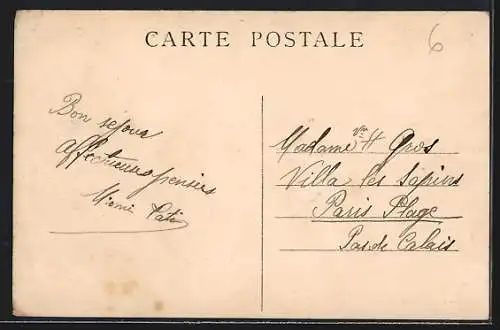 CARTE POSTALE
6
Bon séjour
affectueuses pensées
Madame Vve H Gros
Villa les Sapins
Paris Plage
Pas de Calais